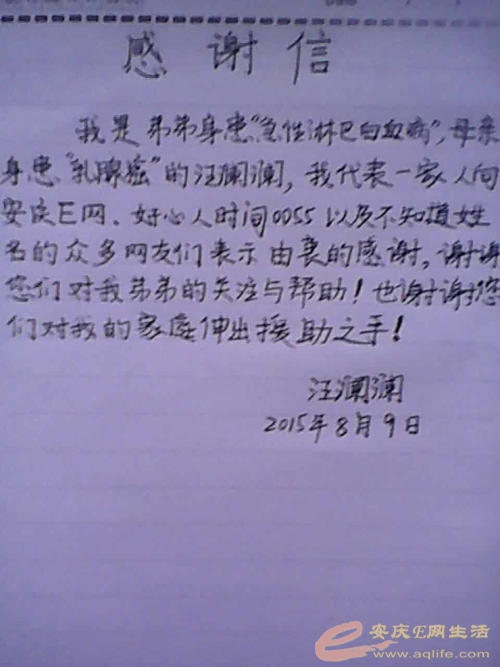 感谢信
我是弟弟身患"急性淋巴白血病",母亲
身患"乳腺癌"的汪澜澜,我代表一家人向
安庆E网、好心人时间0055以及不知道姓
名的众多网友们表示由衷的感谢,谢谢
您们对我弟弟的关注与帮助!也谢谢您
们对我的家庭伸出援助之手!
汪澜澜
2015年8月9日
安庆E网生活
www.aqlife.com